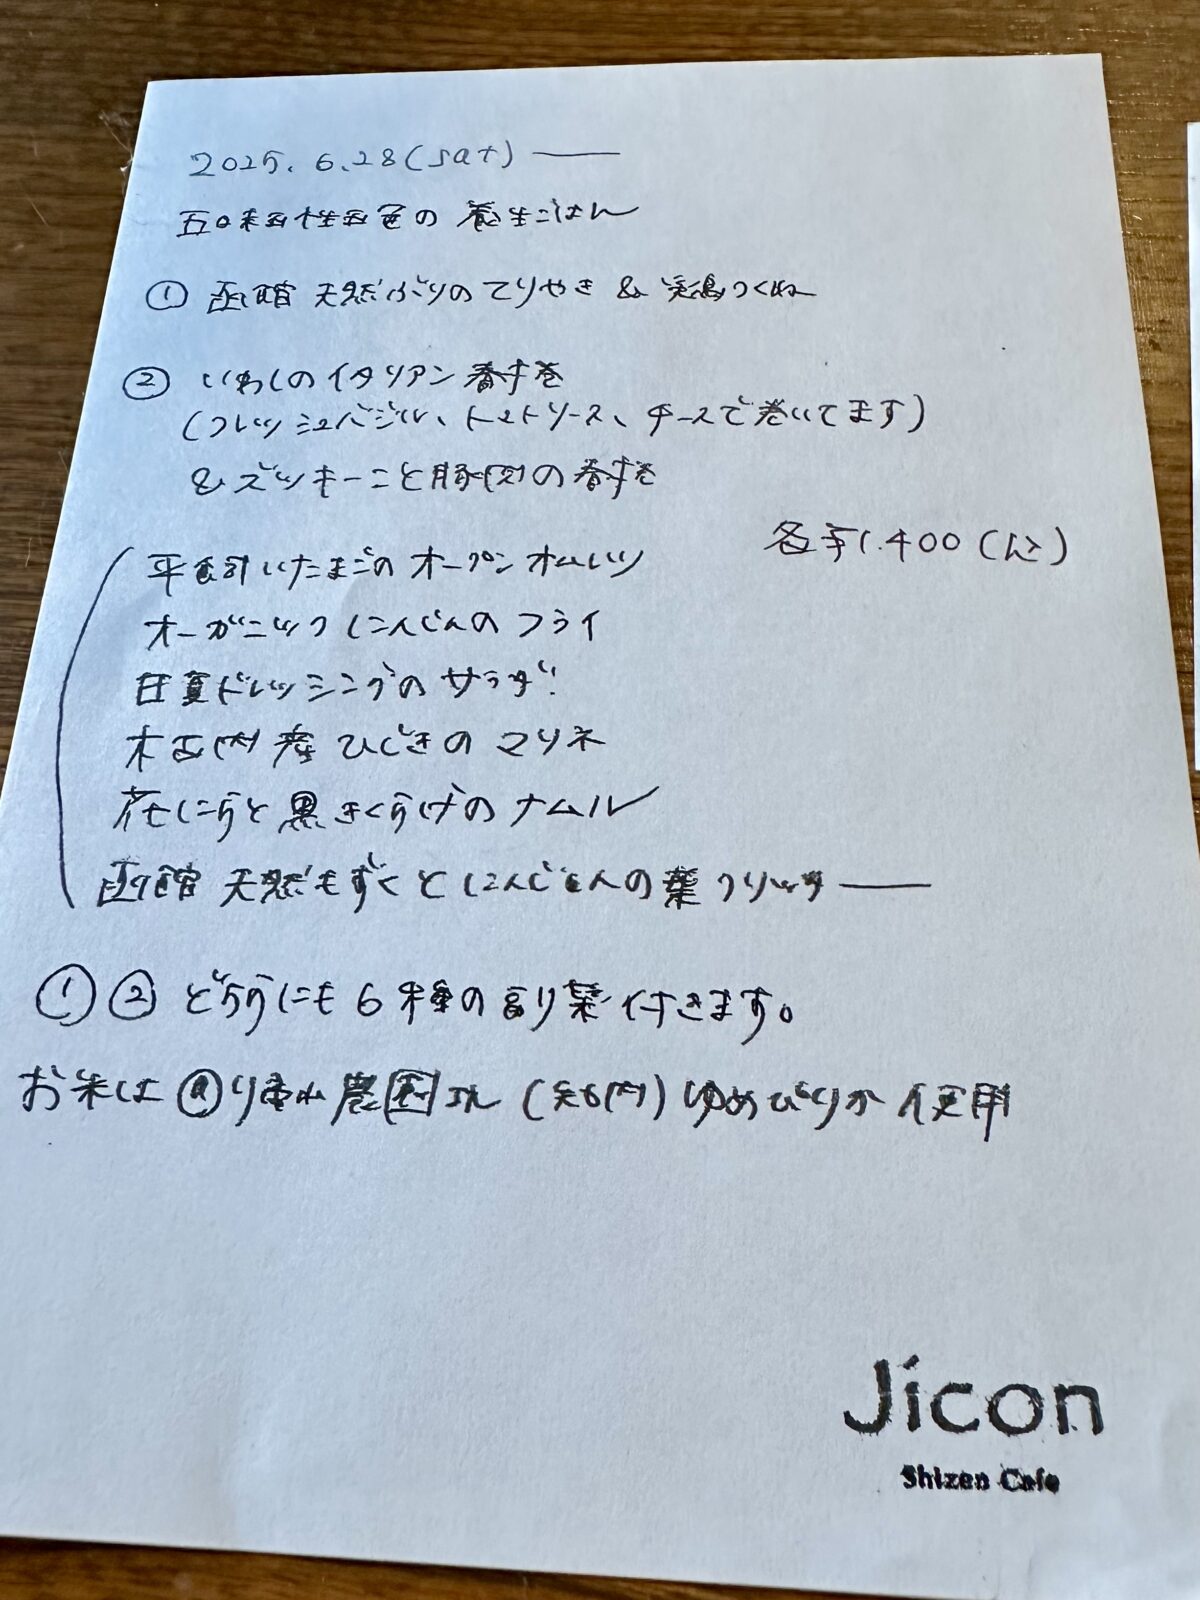 2025.6.28(sat)
五味五性五色の養生ごはん
① 函館 天然ぶりのてりやき & 鶏つくね
② いわしのイタリアン春巻
(フレッシュバジル、トマトソース、チーズで巻いてます)
& ズッキーニと豚肉の春巻
各¥1.400(込)
平飼いたまごのオープンオムレツ
オーガニックにんじんのフライ
甘夏ドレッシングのサラダ
木古内産ひじきのマリネ
花にらと黒きくらげのナムル
函館 天然もずくとにんじんの葉フリット
①② どちらにも6種の副菜付きます。
お米は 農園さん (知内) ゆめぴりか 使用
Jicon
Shizen Cafe